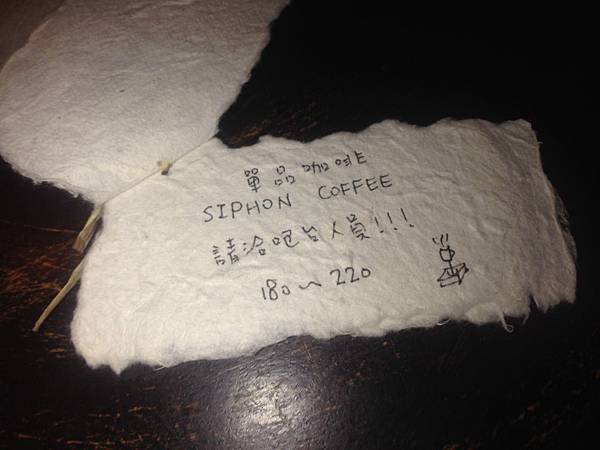 單品咖啡
SIPHON COFFEE
請洽吧台人員!!!
180～220